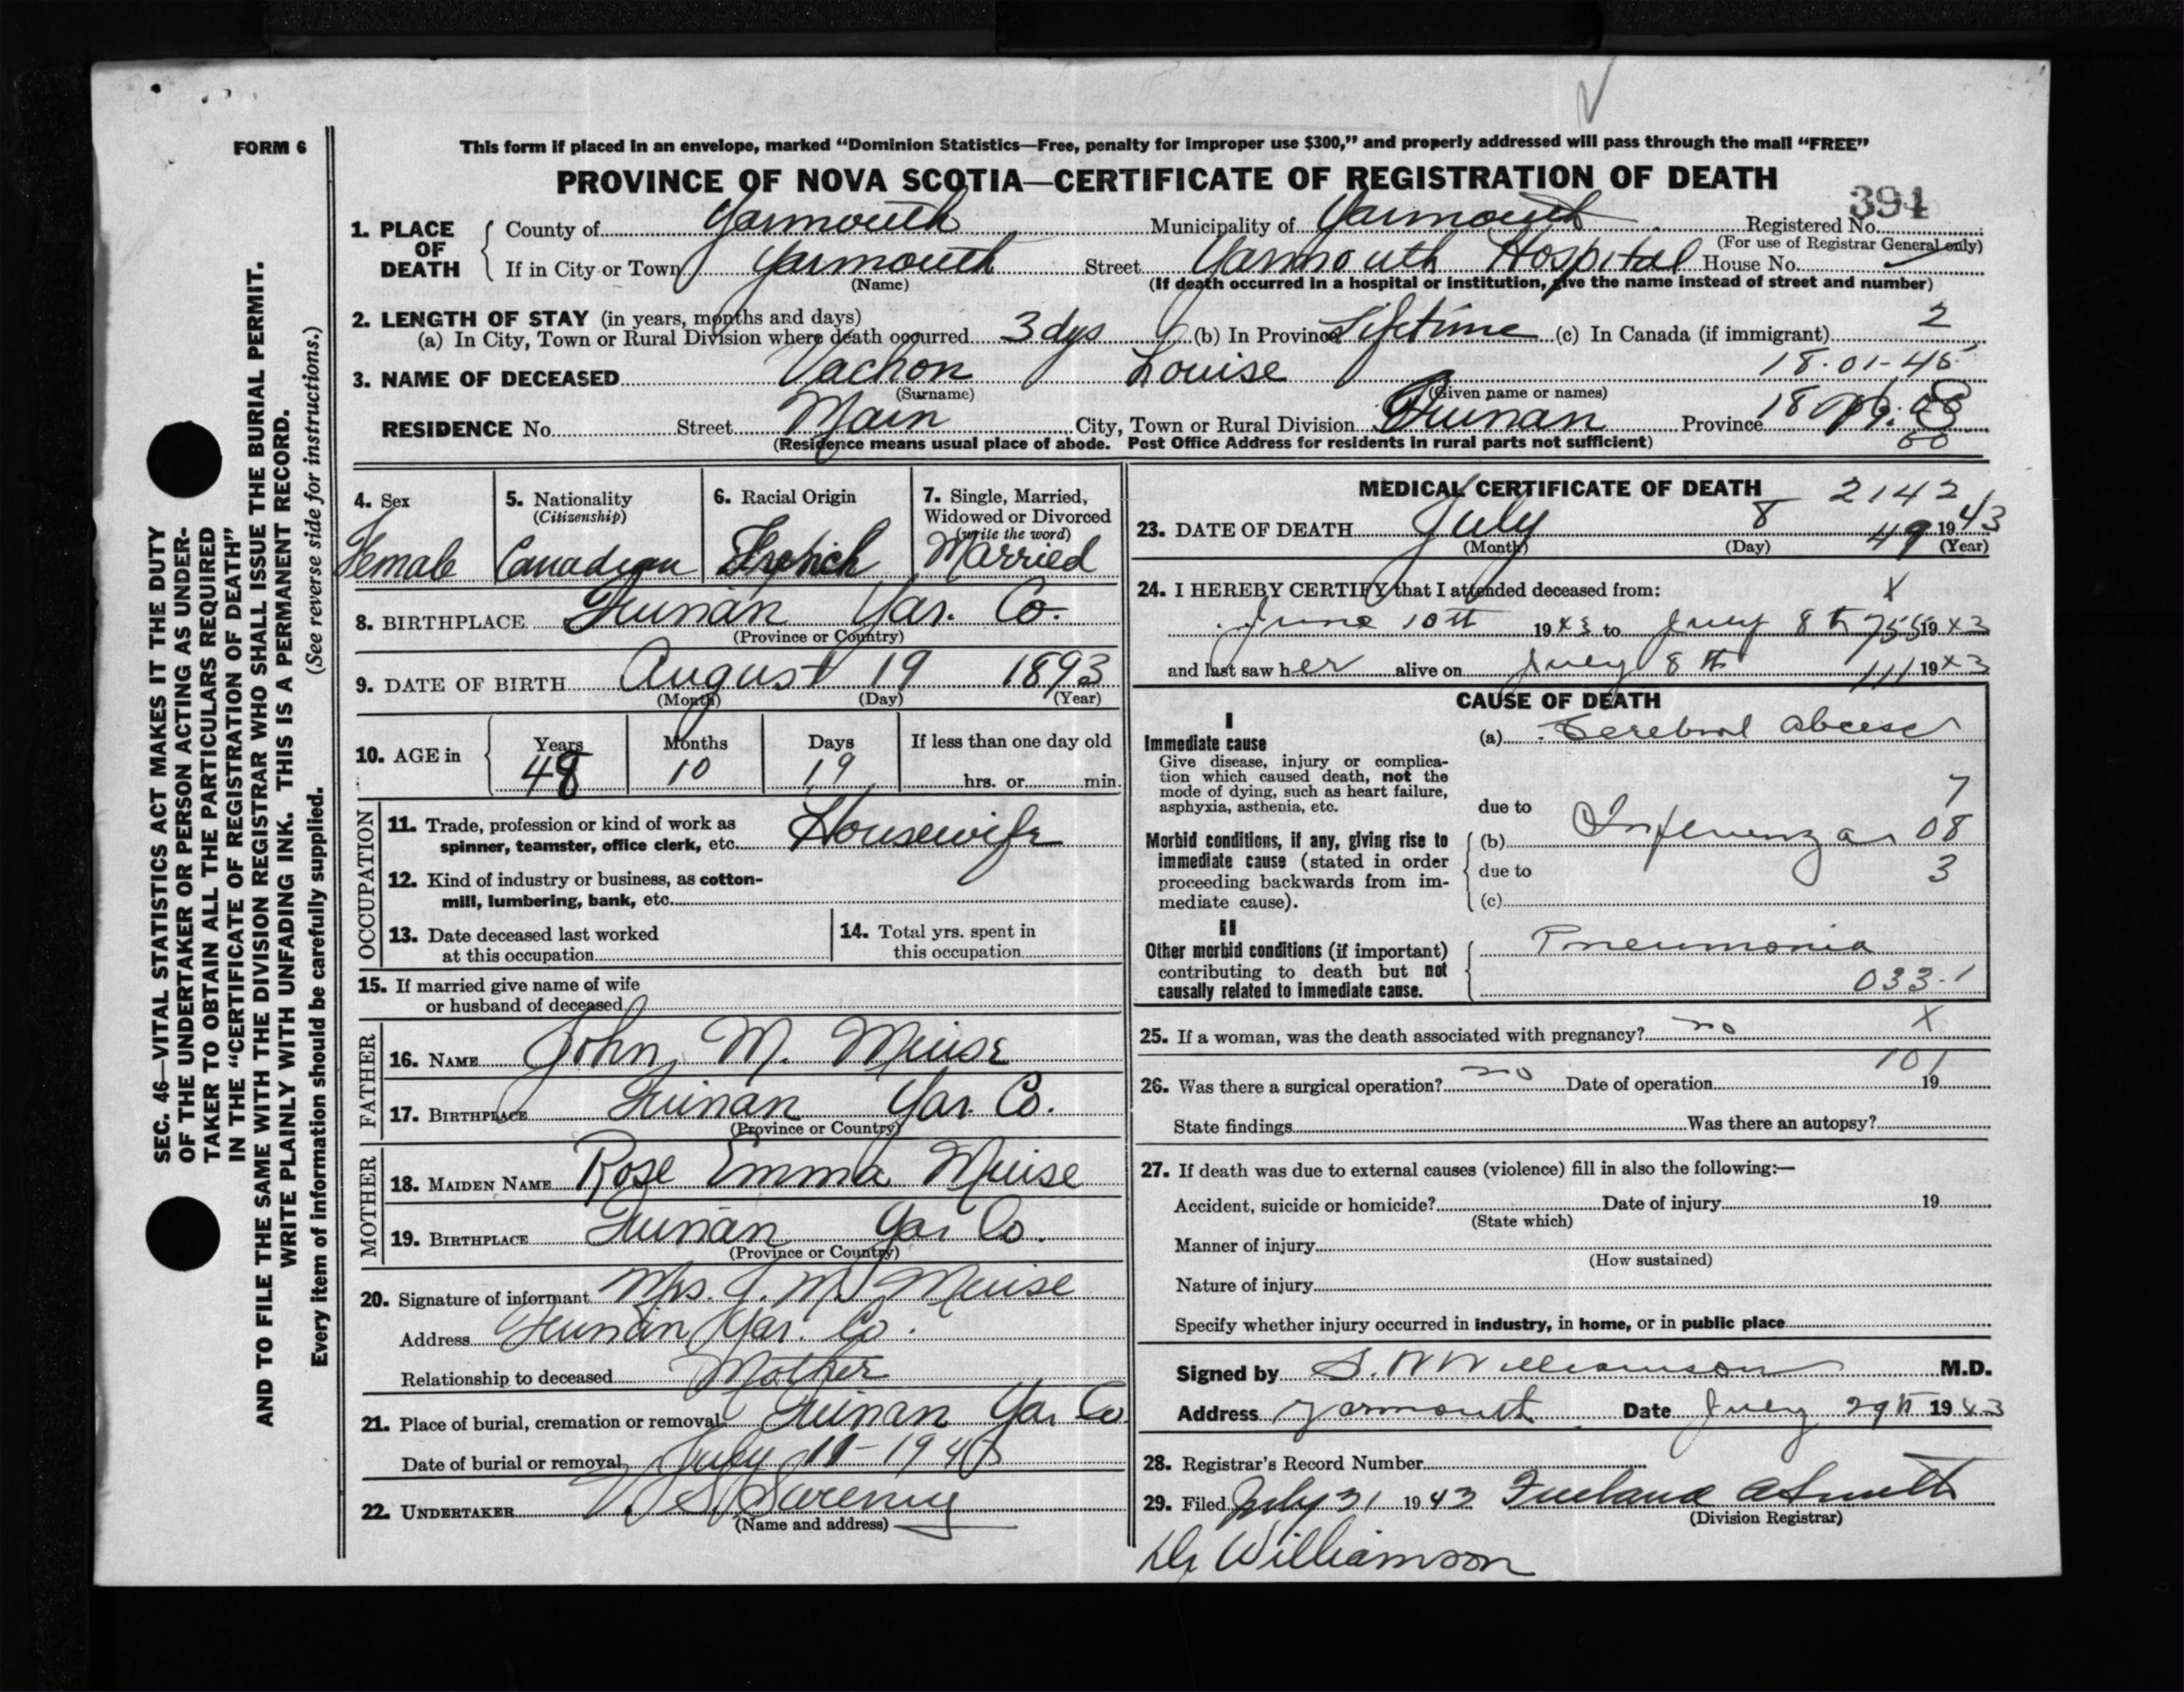 FORM 6
This form if placed in an envelope, marked “Dominion Statistics—Free, penalty for improper use $300,” and properly addressed will pass through the mail “FREE”
PROVINCE OF NOVA SCOTIA—CERTIFICATE OF REGISTRATION OF DEATH
394
1. PLACE OF DEATH
County of Yarmouth Municipality of Yarmouth Registered No.
(For use of Registrar General only)
If in City or Town Yarmouth Street Yarmouth Hospital House No.
(Name) (If death occurred in a hospital or institution, give the name instead of street and number)
2. LENGTH OF STAY (in years, months and days)
(a) In City, Town or Rural Division where death occurred 3 dys (b) In Province Lifetime (c) In Canada (if immigrant) 2
18-01-45
3. NAME OF DECEASED Vachon Louise
(Surname) (Given name or names)
RESIDENCE No. Street Main City, Town or Rural Division Quinan Province 18
(Residence means usual place of abode. Post Office Address for residents in rural parts not sufficient)
4. Sex Female
5. Nationality (Citizenship) Canadian
6. Racial Origin French
7. Single, Married, Widowed or Divorced (write the word) Married
8. BIRTHPLACE Quinan Yar. Co.
(Province or Country)
9. DATE OF BIRTH August 19 1893
(Month) (Day) (Year)
10. AGE in Years Months Days If less than one day old
48 10 19 hrs. or min.
OCCUPATION
11. Trade, profession or kind of work as spinner, teamster, office clerk, etc. Housewife
12. Kind of industry or business, as cotton-mill, lumbering, bank, etc.
13. Date deceased last worked at this occupation
14. Total yrs. spent in this occupation
15. If married give name of wife or husband of deceased
FATHER
16. NAME John M. Muise
17. BIRTHPLACE Quinan Yar. Co.
(Province or Country)
MOTHER
18. MAIDEN NAME Rose Emma Muise
19. BIRTHPLACE Quinan Yar Co.
(Province or Country)
20. Signature of informant Mrs. J. M. Muise
Address Quinan Yar. Co.
Relationship to deceased Mother
21. Place of burial, cremation or removal Quinan Yar Co
Date of burial or removal July 11-1943
22. UNDERTAKER V. S. Sweeny
(Name and address)
MEDICAL CERTIFICATE OF DEATH
2142
23. DATE OF DEATH July 8 49 1943
(Month) (Day) (Year)
24. I HEREBY CERTIFY that I attended deceased from: X
June 10th 1943 to July 8th 755 1943
and last saw her alive on July 8th 111 1943
CAUSE OF DEATH
I
Immediate cause
Give disease, injury or complication which caused death, not the mode of dying, such as heart failure, asphyxia, asthenia, etc.
(a) Cerebral abcess
due to
7
Morbid conditions, if any, giving rise to immediate cause (stated in order proceeding backwards from immediate cause).
(b) Influenza 08
due to 3
(c)
II
Other morbid conditions (if important) contributing to death but not causally related to immediate cause.
Pneumonia
033-1
25. If a woman, was the death associated with pregnancy? no X
101
26. Was there a surgical operation? no Date of operation 19
State findings Was there an autopsy?
27. If death was due to external causes (violence) fill in also the following:—
Accident, suicide or homicide? Date of injury 19
(State which)
Manner of injury
(How sustained)
Nature of injury
Specify whether injury occurred in industry, in home, or in public place
Signed by S. W Williamson M.D.
Address Yarmouth Date July 29th 1943
28. Registrar's Record Number
29. Filed July 31 1943 Freeland A Smith
(Division Registrar)
Dr Williamson
SEC. 46—VITAL STATISTICS ACT MAKES IT THE DUTY
OF THE UNDERTAKER OR PERSON ACTING AS UNDER-
TAKER TO OBTAIN ALL THE PARTICULARS REQUIRED
IN THE “CERTIFICATE OF REGISTRATION OF DEATH”
AND TO FILE THE SAME WITH THE DIVISION REGISTRAR WHO SHALL ISSUE THE BURIAL PERMIT.
WRITE PLAINLY WITH UNFADING INK. THIS IS A PERMANENT RECORD.
Every item of information should be carefully supplied. (See reverse side for instructions.)